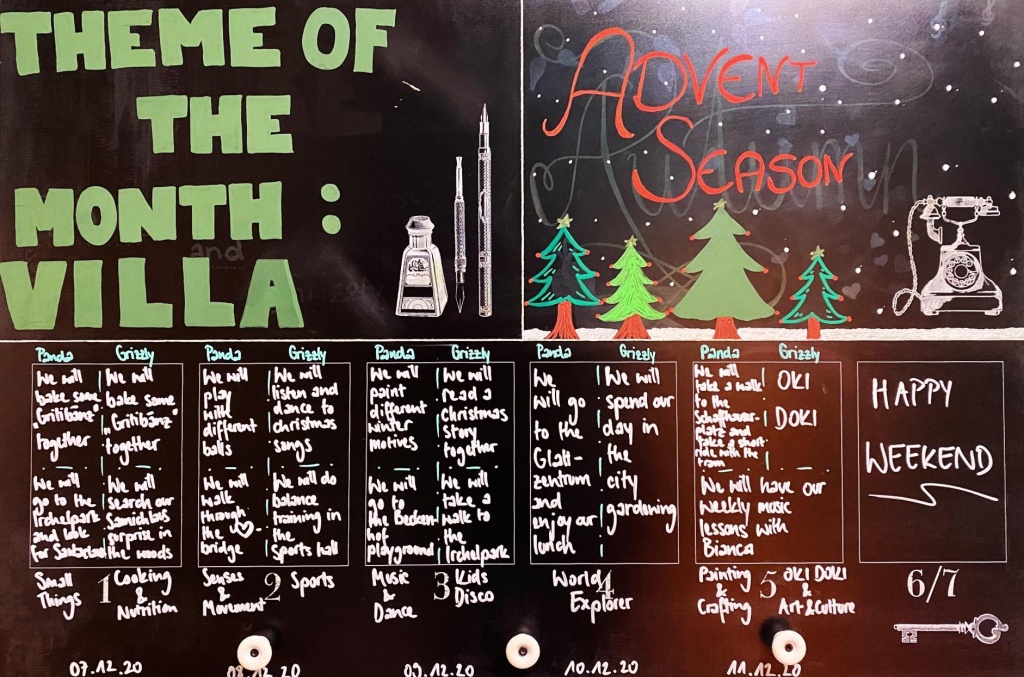 THEME OF
THE
MONTH :
VILLA
and
ADVENT
SEASON
Autumn
Panda
We will
bake some
"Gritibänz"
together
We will
go to the
Irchelpark
and look
for Santa
Small
Things
Grizzly
We will
bake some
"Gritibänz"
together
We will
search our
Samichlaus
surprise in
the woods
1
Cooking
&
Nutrition
Panda
We will
play
with
different
balls
We will
walk
through
the
bridge
Senses
&
Movement
Grizzly
We will
listen and
dance to
christmas
songs
We will do
balance
training in
the
sports hall
2
Sports
Panda
We will
paint
different
winter
motives
We will
go to
the
hof
playground
Music
&
Dance
Grizzly
We will
read a
christmas
story
together
We will
take a
walk to
the
Irchelpark
3
Kids
Disco
Panda
We
will go
to the
Glatt-
zentrum
and
enjoy our
lunch
Grizzly
We will
spend our
day in
the
city
gardening
4
World
Explorer
Panda
We will
take a walk
to the
Schaffhauser-
platz and
take a short
ride with the
tram
Grizzly
OKI
DOKI
We will have our
weekly music
lessons with
Bianca
Painting
&
Crafting
5
OKI DOKI
&
Art & Culture
HAPPY
WEEKEND
6/7
07.12.20
08.12.20
09.12.20
10.12.20
11.12.20